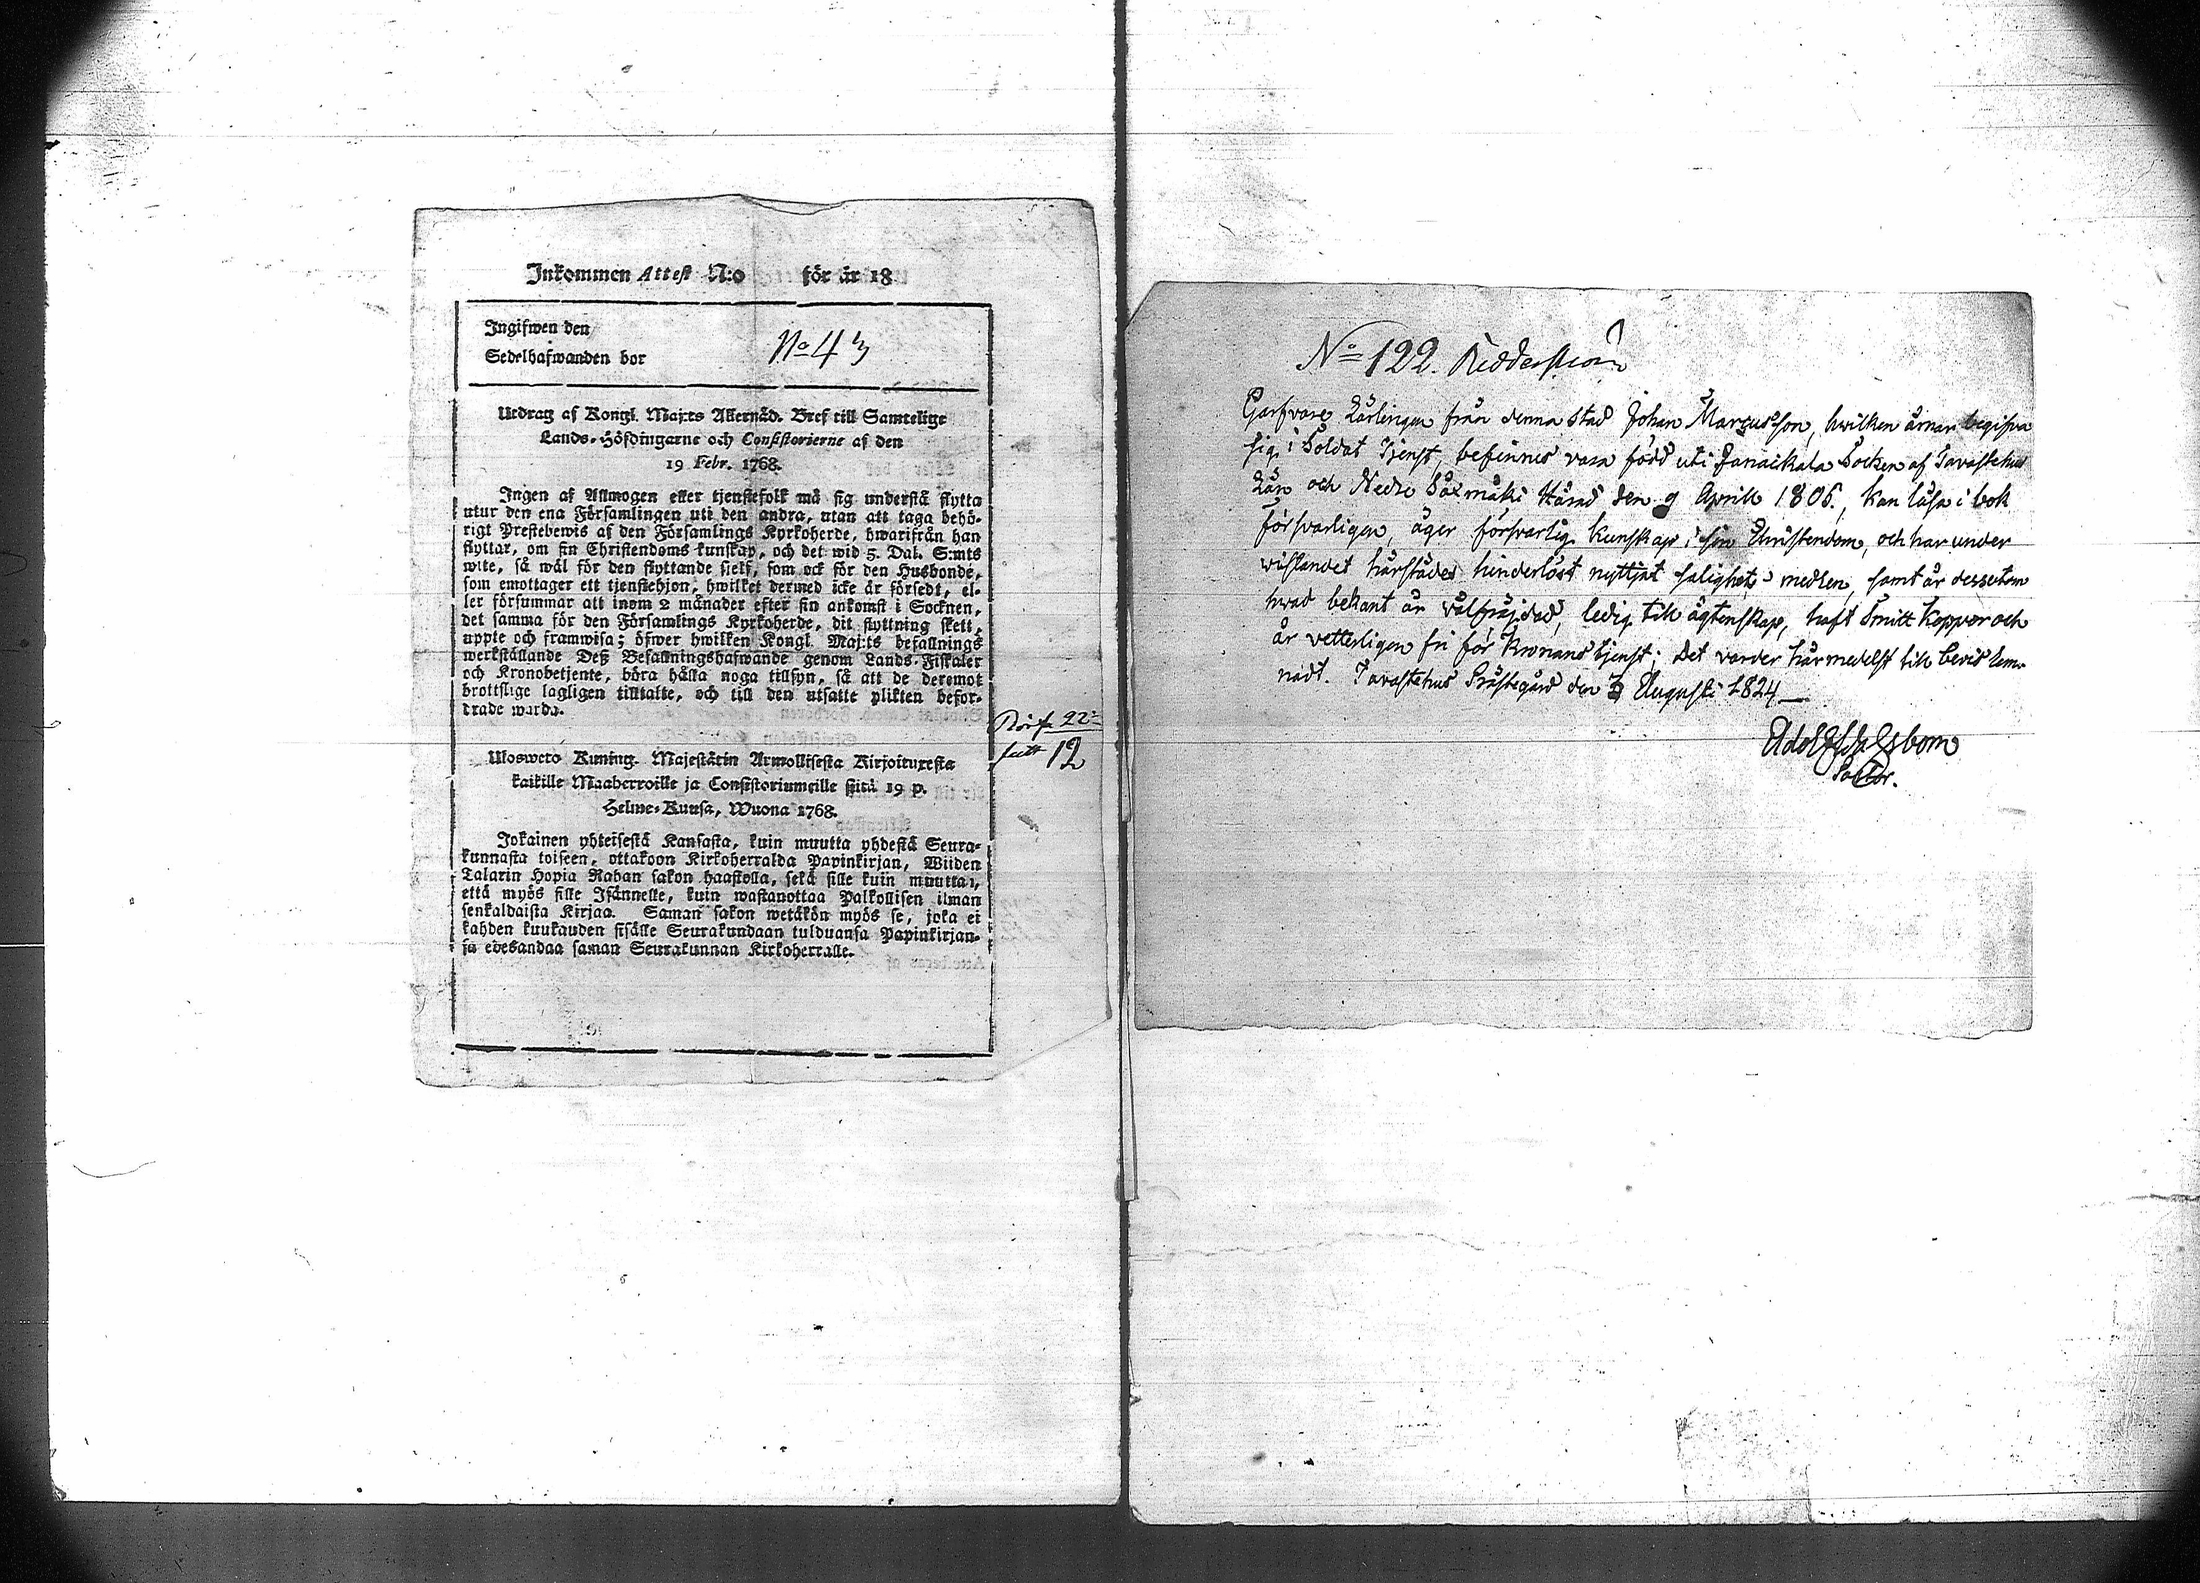 Inkommen Attest N:o för år 18
Ingifwen den
Sedelhafwanden bor
No 43
Utdrag af Kongl. Maj:ts Allernåd. Bref till Samtelige
Lands-Höfdingarne och Consistorierne af den
19 Febr. 1768.
Ingen af Allmogen eller tjenstefolk må sig understå flytta
utur den ena Församlingen uti den andra, utan att taga behö-
rigt Prestebewis af den Församlings Kyrkoherde, hwarifrån han
flyttar, om sin Christendoms kunskap, och det wid 5. Dal. S:mts
wite, så wäl för den flyttande sielf, som ock för den Husbonde,
som emottager ett tjenstehjon, hwilket dermed icke är försedt, el-
ler försummar att inom 2 månader efter sin ankomst i Socknen,
det samma för den Församlings Kyrkoherde, dit flyttning skett,
uppte och framwisa; öfwer hwilken Kongl. Maj:ts befallnings
werkställande Deß Befallningshafwande genom Lands-Fiskaler
och Kronobetjente, böra hålla noga tillsyn, så att de deremot
brottslige lagligen tilltalte, och till den utsatte plikten befor-
trade warda.
Ulosweto Kuning. Majestätin Armollisesta Kirjoituxesta
kaikille Maaherroille ja Consistoriumeille siitä 19 p.
Helme-Kuusa, Wuona 1768.
Jokainen yhteisestä Kansasta, kuin muutta yhdestä Seura-
kunnasta toiseen, ottakoon Kirkoherralda Papinkirjan, Wiiden
Talarin Hopia Rahan sakon haastolla, sekä sille kuin muuttaa,
että myös sille Isännelle, kuin wastanottaa Palkollisen ilman
senkaldaista Kirjaa. Saman sakon wetäkön myös se, joka ei
kahden kuukauden sisälle Seurakundaan tulduansa Papinkirjan-
sa edesandaa saman Seurakunnan Kirkoherralle.
22
12
No 122. Ridderström
Garfvare Lärlingen från denna stad Johan Marcusson, hwilken ärnar begifva
sig i Soldat Tjenst, befinnes vara född uti Janackala Socken af Tavastehus
Län och Nedre Säxmäki Härad den 9 Aprill 1806, kan läsa i bok
försvarligen, äger försvarlig kunskap i sin Christendom, och har under
vistandet härstädes hinderlöst nyttjat salighets medlen, samt är dessutom
hvad bekant är välfräjdad, ledig till ägtenskap, haft Smitt koppor och
är vetterligen fri för Kronans tjenst; Det varder härmedelst till bevis lem-
nadt. Tavastehus Prästegård den 3 Augusti 1824
Pastor.